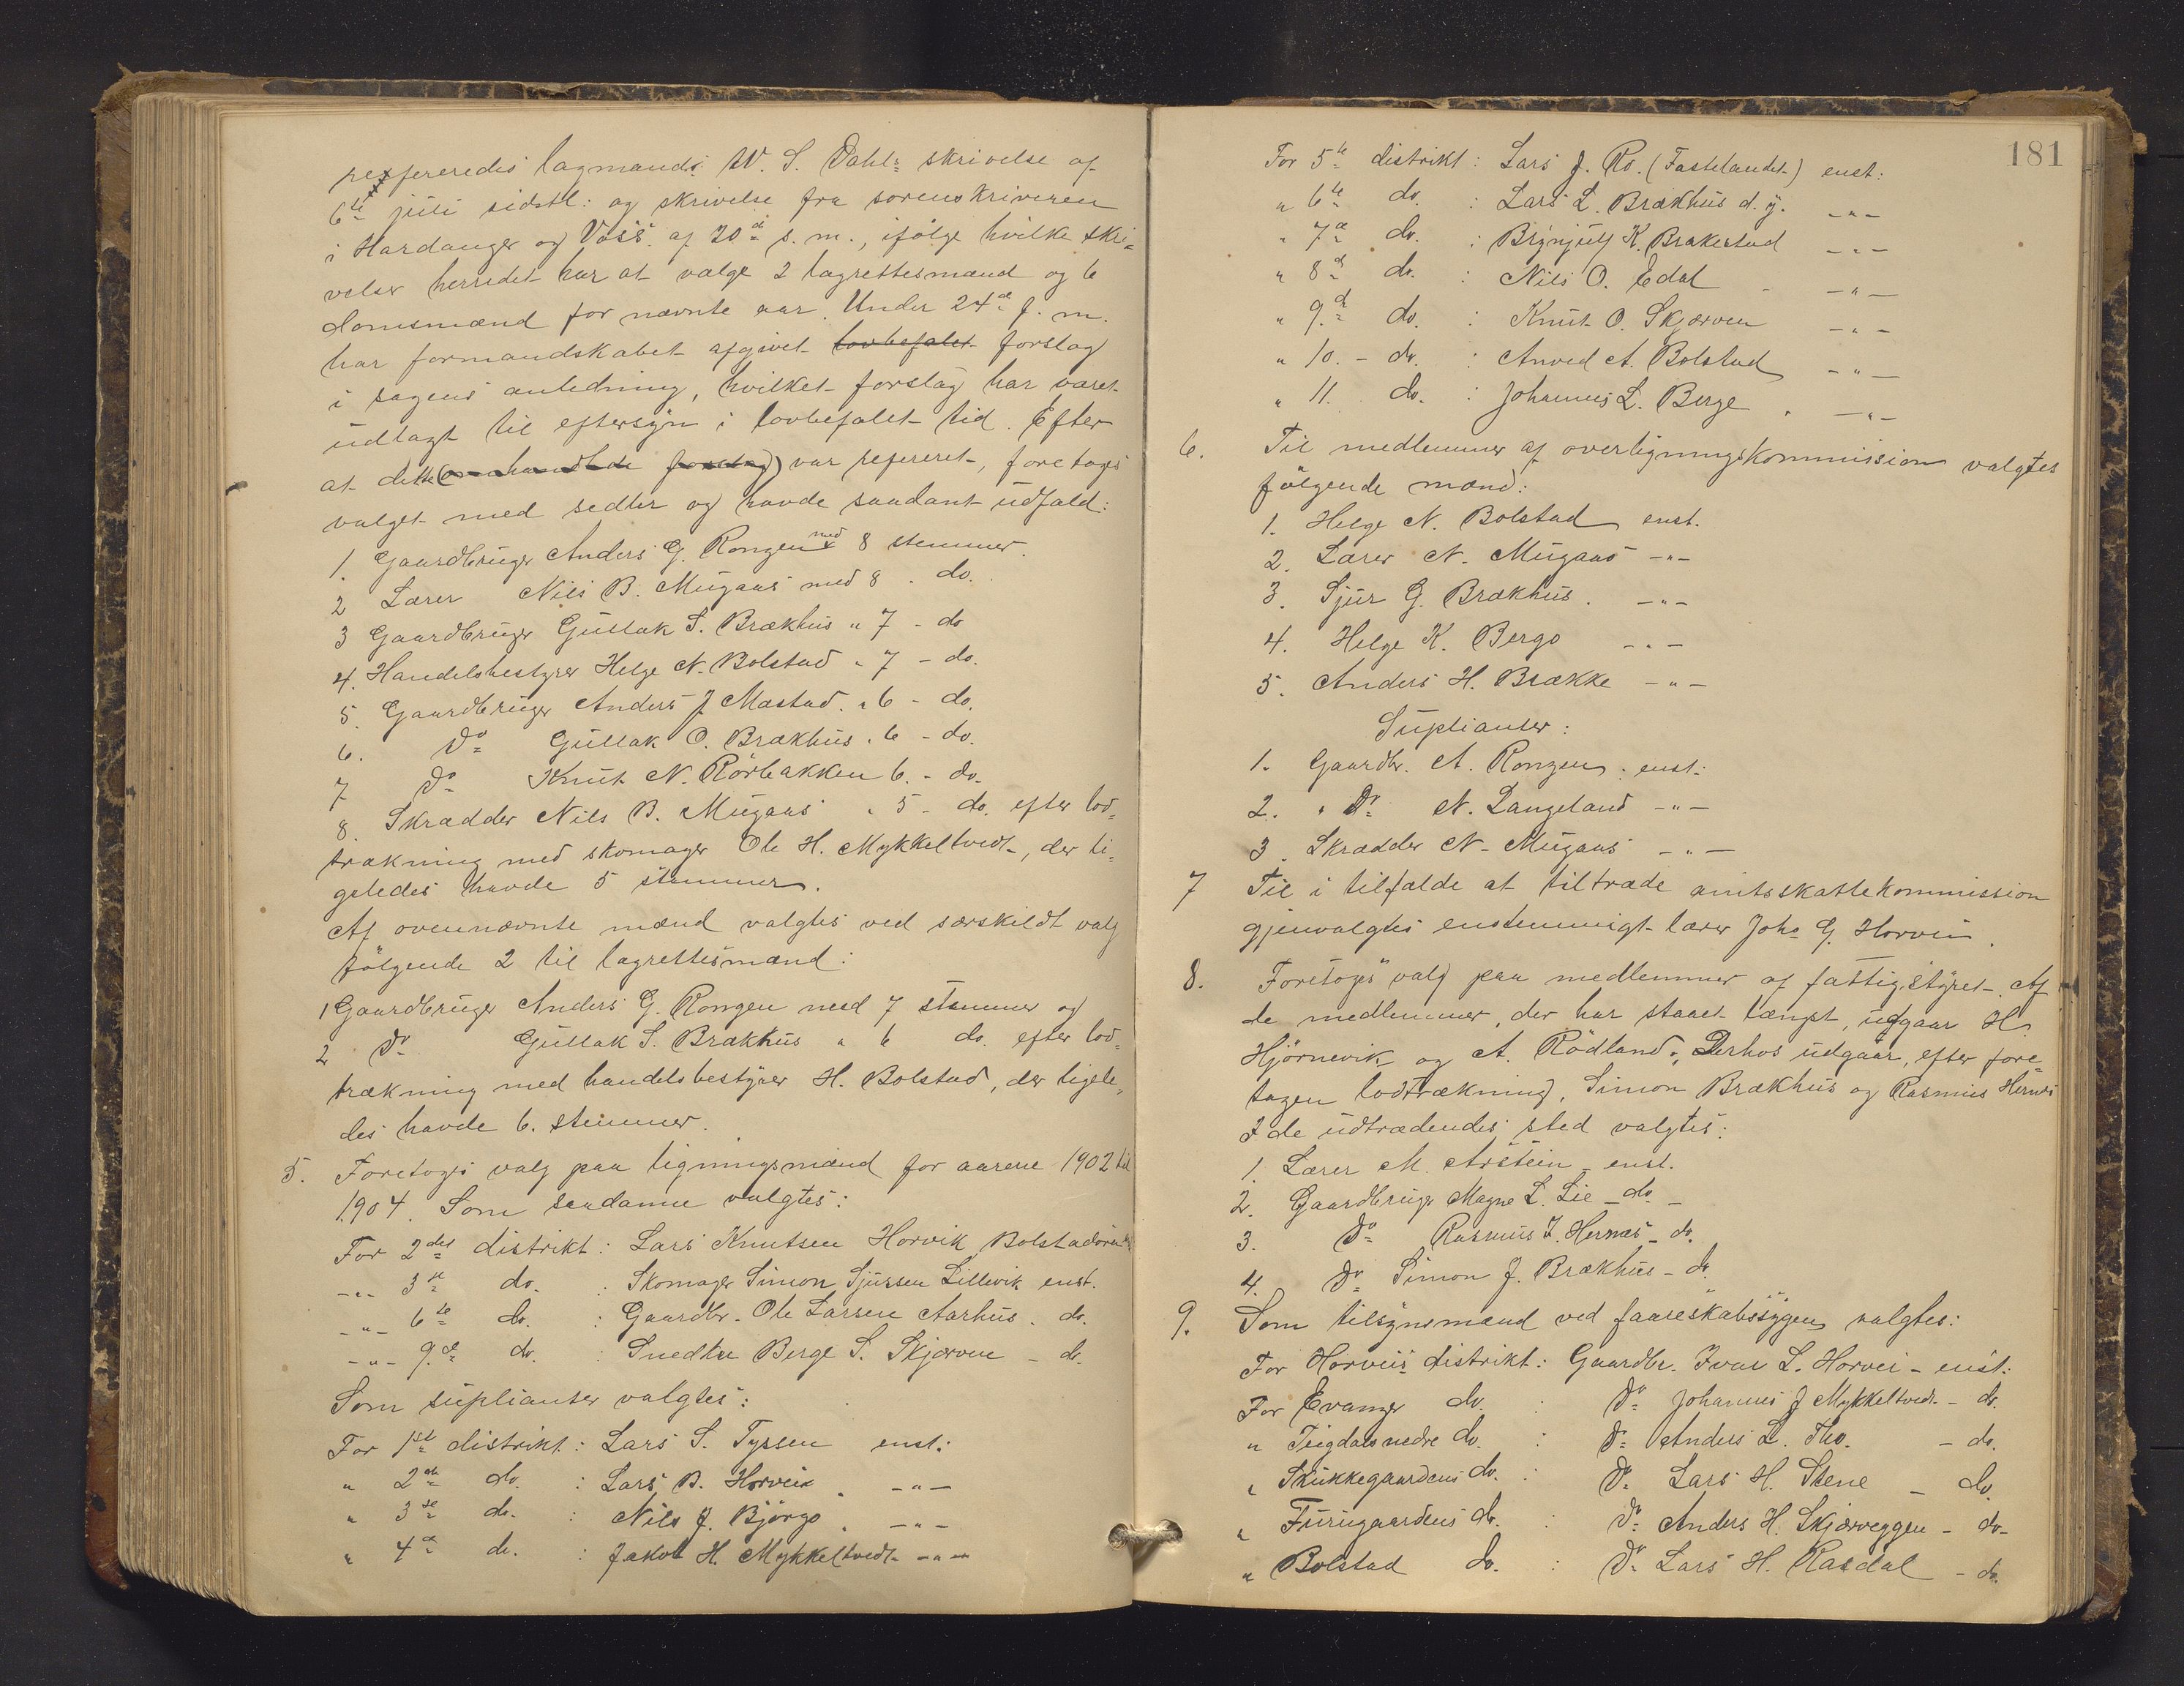 refereredes lagmands W. S. Dahls skrivelse af
6te juli sidstl: og skrivelse fra sorenskriveren
i Hardanger og Voss af 20de s. m., ifølge hvilke skri-
velser herredet har at vælge 2 lagrettesmænd og 6
domsmænd for nævnte aar. Under 24de f. m.
har formandskabet afgivet lovbefalet forslag
i sagens anledning, hvilket forslag har været
udlagt til eftersyn i lovbefalet tid. Efter
at dette (omhandlede forslag) var refereret, foretoges
valget med sedler og havde saadant udfald:
1. Gaardbruger Anders G. Rongen med 8 stemmer.
2 Lærer Nils B. Mugaas med 8 - do.
3 Gaardbruger Gullak S. Brækhus " 7 - do
4. Handelsbestyrer Helge N. Bolstad " 7 - do.
5. Gaardbruger Anders J Mæstad. " 6 - do.
6. Do Gullak O. Brækhus " 6 - do.
7 Do Knut N. Rörbakken 6. - do.
8. Skrædder Nils B. Mugaas " 5 - do. efter lod-
trækning med skomager Ole H. Mykkeltvedt, der li-
geledes havde 5 stemmer.
Af ovennævnte mænd valgtes ved særskildt valg
følgende 2 til lagrettesmænd:
1 Gaardbruger Anders G. Rongen med 7 stemmer og
2 Do Gullak S. Brækhus " 6 do. efter lod-
trækning med handelsbestyrer H. Bolstad, der ligele-
des havde 6. stemmer.
5. Foretoges valg paa ligningsmænd for aarene 1902 til
1904. Som saadanne valgtes:
For 2det distrikt: Lars Knutsen Horvik Bolstadøren
-"- 3die do. : Skomager Simon Sjursen Lillevik enst.
-"- 6te do. : Gaardbr. Ole Larsen Aarhus. do.
-"- 9de do. : Snedker Berge S. Skjerven - do.
Som suplianter valgtes:
For 1ste distrikt: Lars S. Tyssen enst:
" 2det do. : Lars B. Horvei -"-
" 3die do. : Nils J. Björgo. -"-
" 4de do. : Jakob H. Mykkeltvedt -"-
181
For 5te distrikt: Lars J. Ro. (Fastelandet) enst:
" 6te do. : Lars L. Brækhus d. y. -"-
" 7de do. : Brynjulf K. Brakestad -"-
" 8de do. : Nils O. Edal -"-
" 9de do. : Knut O. Skjerven -"-
" 10. - do. : Anved A. Bolstad -"-
" 11. do. : Johannes L. Berge -"-
6. Til medlemmer af overligningskommission valgtes
følgende mænd:
1. Helge N. Bolstad enst.
2. Lærer N. Mugaas -"-
3. Sjur G. Brækhus. -"-
4. Helge K. Bergo -"-
5. Anders H. Brække -"-
Suplianter:
1. Gaardbr. A. Rongen. enst:
2. " Do N. Langeland -"-
3. Skrædder N. Mugaas -"-
7 Til i tilfælde at tiltræde amtsskattekommission
gjenvalgtes enstemmigt lærer Johs G. Horvei.
8. Foretoges valg paa medlemmer af fattigstyret. Af
de medlemmer, der har staaet længst, udgaar H.
Hjörnevik og A. Rödland. Derhos udgaar, efter fore-
tagen lodtrækning, Simon Brækhus og Rasmus Hernes
I de udtrædendes sted valgtes:
1. Lærer M. Arstein - enst.
2. Gaardbruger Magne L. Lie - do. -
3. Do Rasmus I. Hernæs - do.
4. Do Simon J. Brækhus - do.
9. Som tilsynsmænd ved faareskabssygen valgtes:
For Horveis distrikt: Gaardbr. Ivar L. Horvei - enst:
For Evanger do. : Do Johannes J Mykkeltvedt - do.
" Teigdals nedre do. : Do Anders L. Tho. - do.
" Stukkegaardens do. : Do Lars H. Stene - do.
" Furugaardens do. : Do Anders H. Skjerveggen - do.
" Bolstad do. : Do Lars H. Rasdal - do.